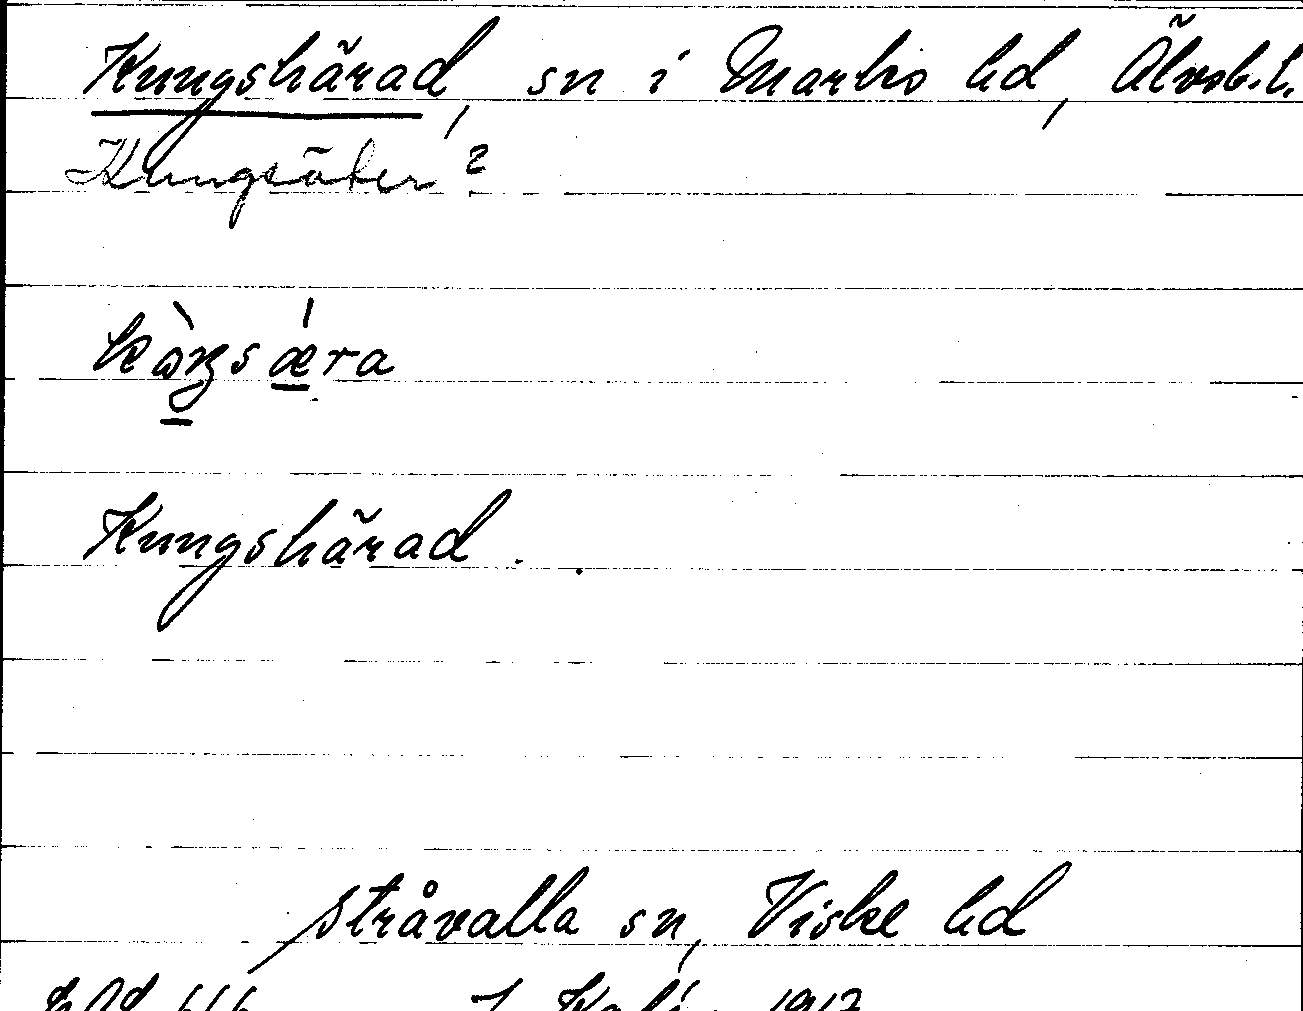 Kungshärad, sn i Marks hd, Älvsb.l.
Kungsäter?
Kungshärad.
Stråvalla sn, Viske hd
1917